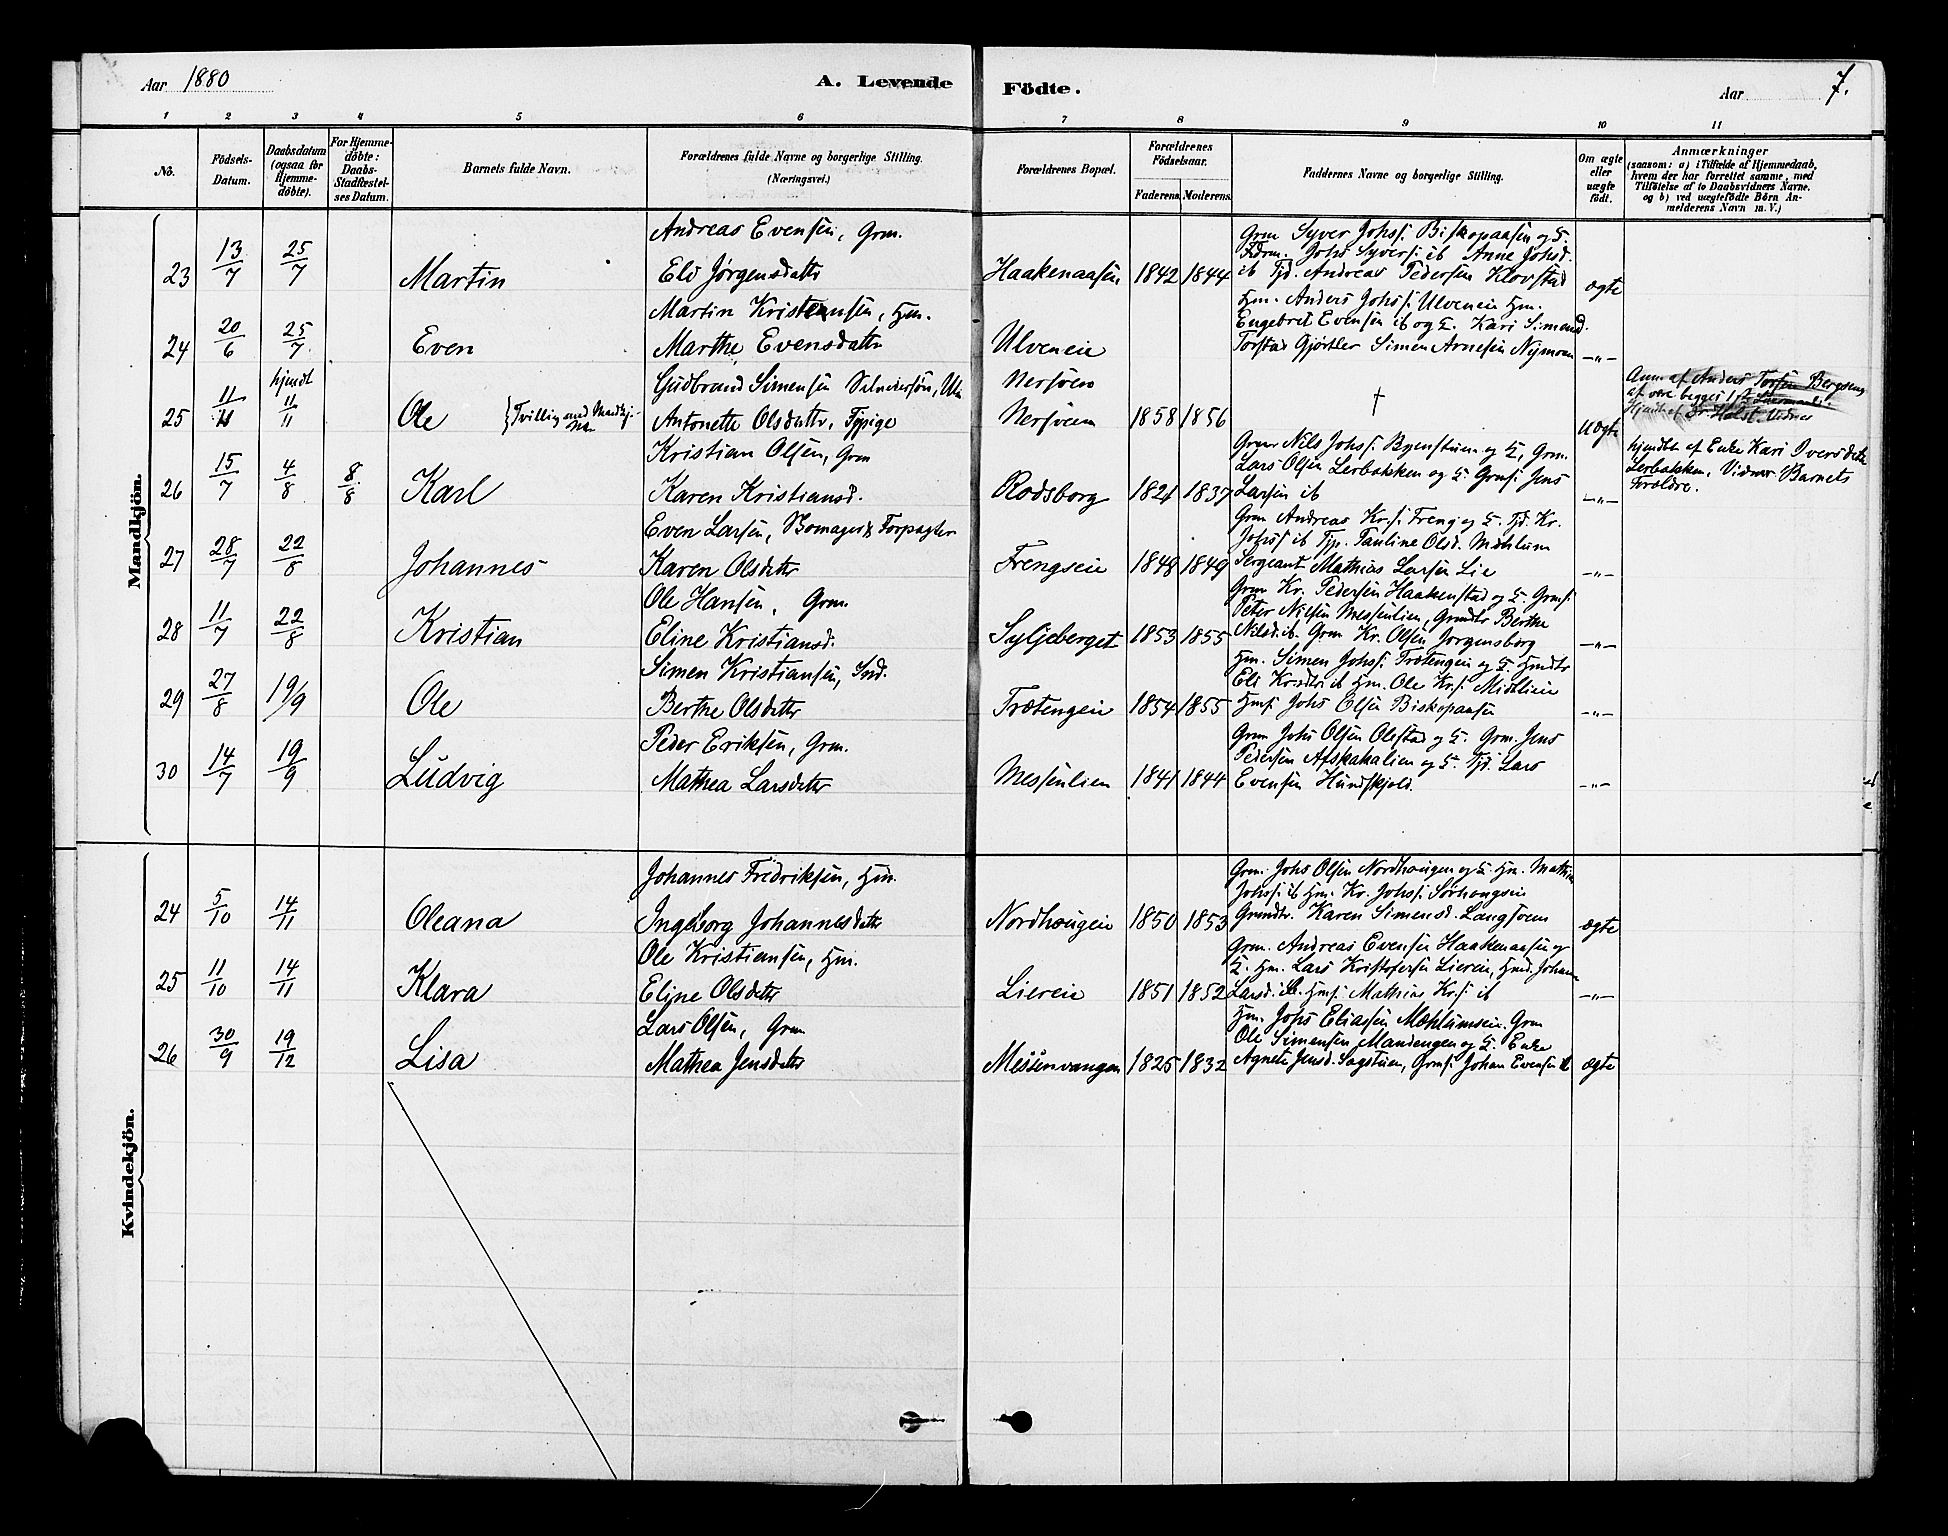 Aar 1880
A. Levende Födte.
Aar 7.
1 2 3 4 5 6 7 8 9 10 11
No.
Födsels-Datum.
Daabsdatum (ogsaa for Hjemme-döbte).
For Hjemme-döbte: Daabs-Stadfæstel-ses Datum.
Barnets fulde Navn.
Forældrenes fulde Navne og borgerlige Stilling. (Næringsvei.)
Forældrenes Bopæl.
Forældrenes Födselsaar.
Faderens. Moderens.
Faddernes Navne og borgerlige Stilling.
Om ægte eller uægte födt.
Anmærkninger
(saasom: a) i Tilfælde af Hjemmedaab,
hvem der har forrettet samme, med
Tilföielse af to Daabsvidners Navne.
og b) ved uægtefödte Börn An-
melderens Navn m. V.)
Mandkjön.
23 13/7 25/7 Martin
Andreas Evensen, Grm.
Eli Jørgensdatter
Haakenaasen 1842 1844
Grm Syver Johs. Biskopaasen og H.
Johs Syvers. ib Anne Johsd.
ib Tjd. Andreas Pedersen Klovstad
ægte
24 20/6 25/7 Even
Martin Kristensen, Hm.
Marthe Evensdatter
Ulveneie
Hm. Anders Johs. Ulveneie Hm.
Engebret Evensen ib og H. Kari Simensd.
Torstad Gjørtler Simen Arnesen Nymoen
-"-
25 11/11 hjemdt 11/11 Ole {Tvilling med Mandkj.
Gudbrand Simensen
Antonette Olsdatter, Tjpige
Nersøen
Nersøen 1858 1856
†
uægte
Anm. af Anders Torsen Bergseng
Hjemdt af Dr. Holst. Vidner
26 15/7 4/8 8/8 Karl
Kristian Olsen, Grm
Karen Kristiansd.
Rodsborg 1821 1837
Grm Nils Johs. Byenstuen og H., Grm.
Lars Olsen Lerbakken og H. Grms. Jens
Larsen ib
-"-
hjemdt af Enke Kari Iversdatter
Lerbakken. Vidner: Barnets
Forældre.
27 28/7 22/8 Johannes
Even Larsen, Forpagter
Karen Olsdatter
Frengseie 1848 1849
Grm Andreas Kr. Freng og H. Tjd. Kr.
Johs. ib Tjp. Pauline Olsd. Mæhlum
Sergeant Mathias Larsen Lie
-"-
28 11/7 22/8 Kristian
Ole Hansen, Grm.
Eline Kristiansd.
Syljeberget 1853 1855
Grm Kr. Pedersen Haakenstad og H. Grms.
Peter Nilsen Messenlien, Grmdtr Berthe
Nilsd. ib. Grm Kr. Olsen Jørgensborg
-"-
29 27/8 19/9 Ole
Simen Kristiansen, Ind.
Berthe Olsdatter
Trøtengeie 1854 1855
Hm. Simen Johs. Trøtengeie og H. Hmdtr
Eli Krsdtr ib Hm. Ole Kr. Midtlieie
Hms. Johs Olsen Biskopaasen
-"-
30 14/7 19/9 Ludvig
Peder Eriksen, Grm.
Mathea Larsdatter
Messenlien 1841 1844
Grm Johs Olsen Olstad og H. Grm. Jens
Pedersen Afskakalien og H. Tjd. Lars
Evensen Hundskjold.
-"-
Kvindekjön.
24 5/10 14/11 Oleana
Johannes Fredriksen, Hm.
Ingeborg Johannesdatter
Nordhøugeie 1850 1853
Grm. Johs Olsen Nordhaugen og H. Hm. Mathias
Johs. ib Hm. Kr. Johs. Sørhougseie
Grmdtr. Karen Simensd. Langsveen
ægte
25 11/10 14/11 Klara
Ole Kristiansen, Hm.
Eline Olsdatter
Liereie 1851 1852
Grm. Andreas Evensen Haakenaasen og
H. Hm. Lars Kristofersen Liereie, Hmd. Johanne
Larsd. ib. Hms. Mathias Kr. ib
-"-
26 30/9 19/12 Lisa
Lars Olsen, Grm
Mathea Jensdatter
Messenvangen 1825 1832
Hm. Johs Eliasen Mæhlumseie. Grm
Ole Simensen Mandengen og H. Enke
Agnete Jensd. Sagstuen, Grms. Johan Evensen ib
ægte